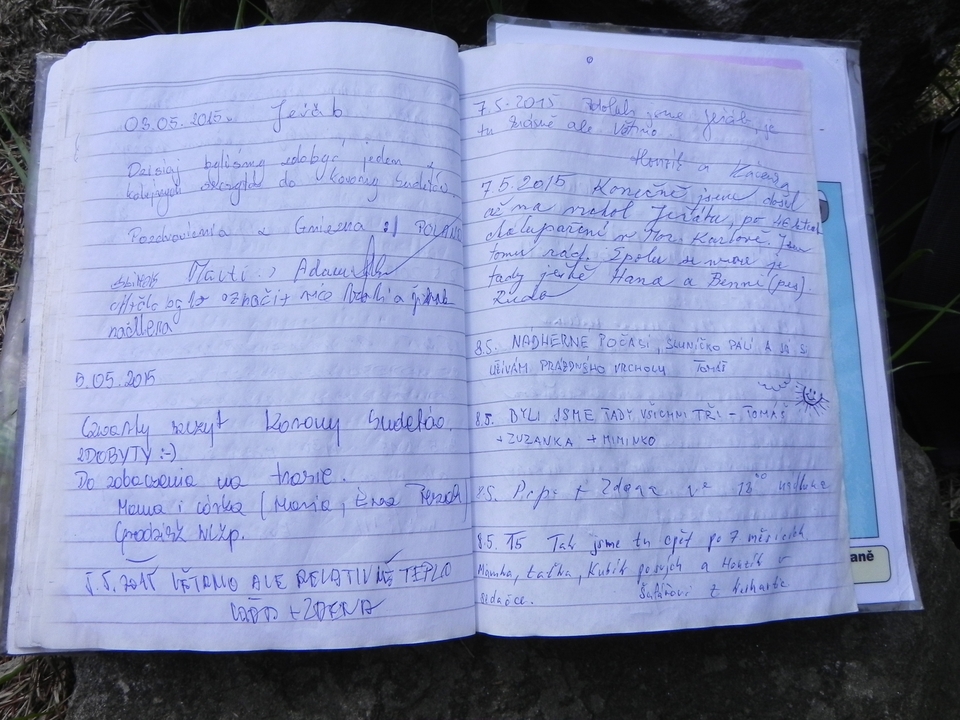 03.05.2015r Jeřáb
Dzisiaj byliśmy zdobyć jeden z
kolejnych szczytów do Korony Sudetów.
Pozdrowienia z Gniezna :) POLSKA
Marti :) Adam
chtělo by to označit
nádhera
5.05.2015
Czwarty szczyt Korony Sudetów
ZDOBYTY :-)
Do zobaczenia na trasie.
Mama i córka (Maria, Ewa
Grodzisk Wlkp.
5.5.2015 VĚTRNO ALE RELATIVNĚ TEPLO
LÁĎA + ZDENA
7.5.2015 jsme Jeřáb, je
tu krásně ale větrno.
Honzík a
7.5.2015 Konečně jsem došel
až na vrchol Jeřábu, po letech
chalupaření v Hor. Karlově. Jsem
tomu rád. Spolu se mnou je
tady ještě Hana a Benni (pes)
8.5. NÁDHERNÉ POČASÍ, SLUNÍČKO PÁLÍ A JÁ SI
UŽÍVÁM PRÁZDNÉHO VRCHOLU TOMÁŠ
8.5. BYLI JSME TADY VŠICHNI TŘI - TOMÁŠ
+ ZUZANKA + MIMINKO
8.5. Pepa + Zdena ve 13⁰⁰
8.5. 15 Tak jsme tu opět po 7 měsících
Mamka, taťka, Kubík a Honzík v
sedačce. Šafářovi z
aně